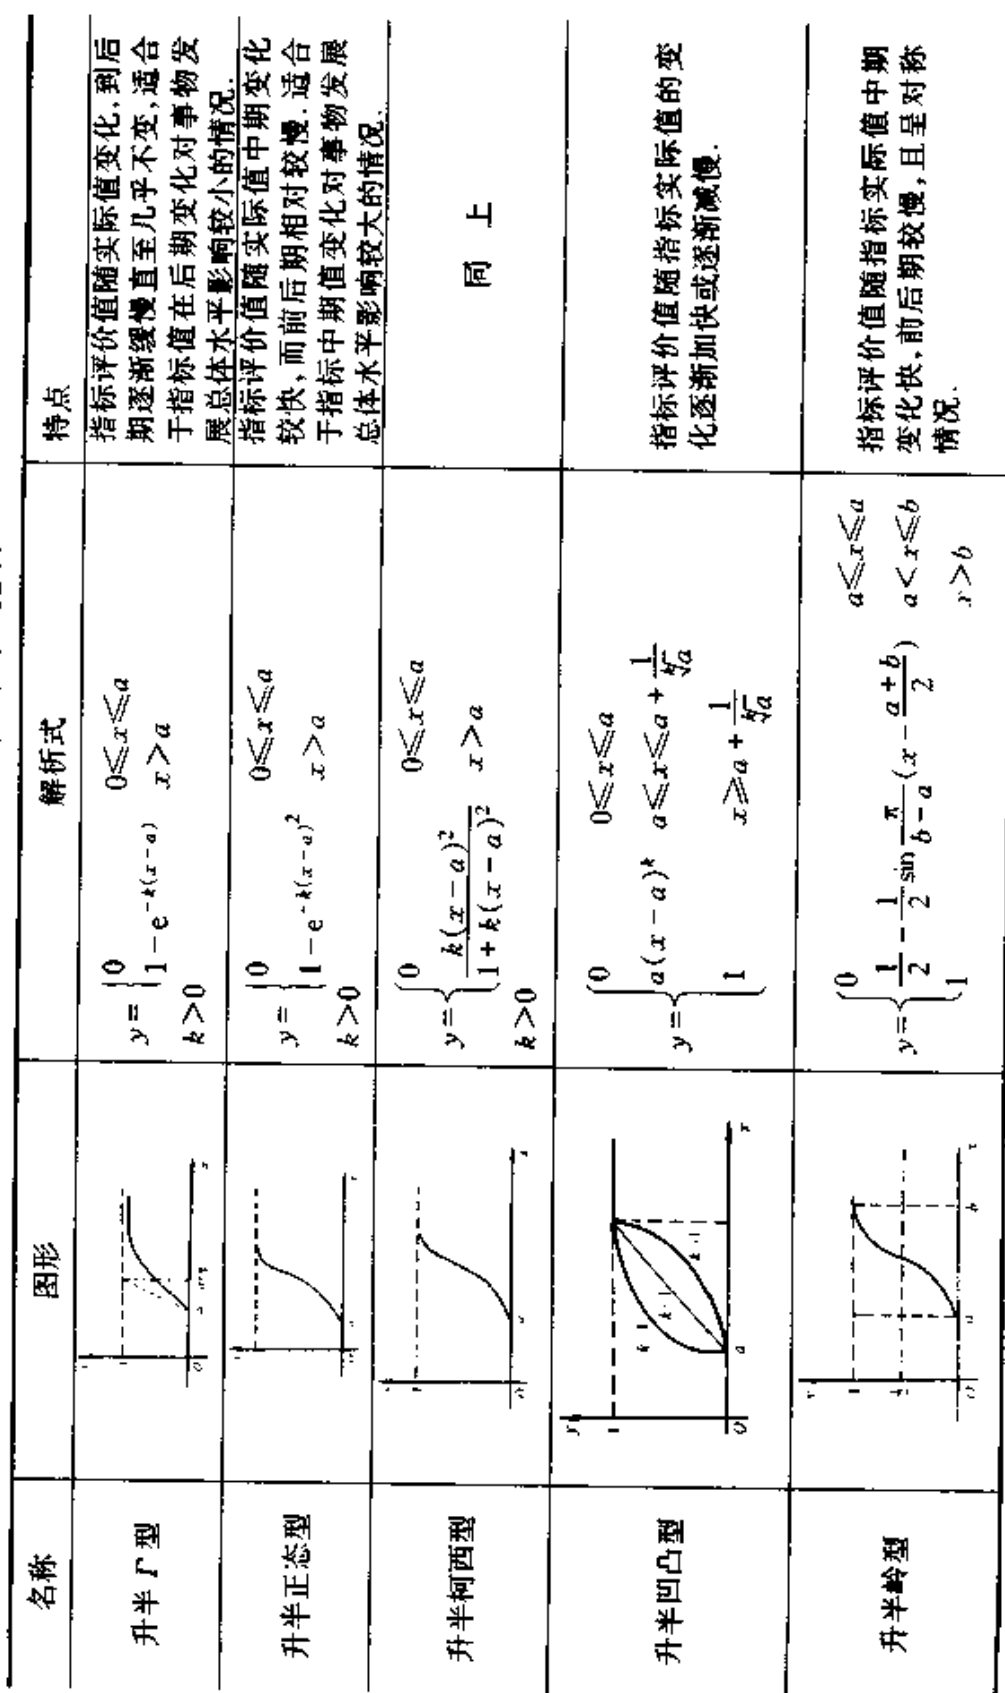 名称
图形
解析式
特点
升半 Γ 型
y = { 0 0⩽x⩽a
1 − e^{−k(x−a)} x>a
k>0
指标评价值随实际值变化,到后
期逐渐缓慢直至几乎不变,适合
于指标值在后期变化对事物发
展总体水平影响较小的情况.
升半正态型
y = { 0 0⩽x⩽a
1 − e^{−k(x−a)^2} x>a
k>0
指标评价值随实际值中期变化
较快,而前后期相对较慢.适合
于指标中期值变化对事物发展
总体水平影响较大的情况.
升半柯西型
y = { 0 0⩽x⩽a
k(x−a)^2 / 1+k(x−a)^2 x>a
k>0
同 上
升半凹凸型
y
1
O
a
x
y = { 0 0⩽x⩽a
a(x−a)^k a⩽x⩽a+1/ᵏ√a
1 x⩾a+1/ᵏ√a
指标评价值随指标实际值的变
化逐渐加快或逐渐减慢.
升半岭型
y = { 0 a⩽x⩽a
1/2 − 1/2 sin π/(b−a) (x − (a+b)/2) a<x⩽b
1 x>b
指标评价值随指标实际值中期
变化快,前后期较慢,且呈对称
情况.